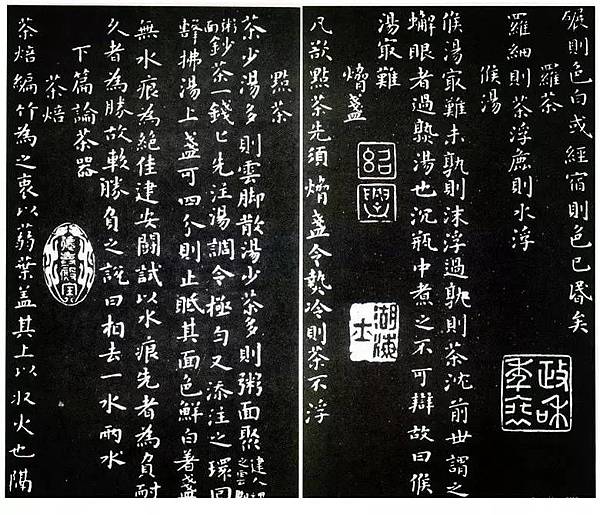 碾則色白或經宿則色已昬矣
羅茶
羅細則茶浮麄則水浮
候湯
候湯冣難未孰則沫浮過孰則茶沈前世謂之
蠏眼者過孰湯也沉瓶中煮之不可辯故曰候
湯冣難
熁盞
凡欲點茶先須熁盞令熱冷則茶不浮
紹興
政和
點茶
茶少湯多則雲脚散湯少茶多則粥面聚建人謂之雲
粥面鈔茶一錢匕先注湯調令極勻又添注之環回
擊拂湯上盞可四分則止眂其面色鮮白著盞
無水痕為絶佳建安鬭試以水痕先者為負耐
久者為勝故較勝負之說曰相去一水兩水
下篇論茶器
茶焙
茶焙編竹為之裹以蒻葉盖其上以收火也隔